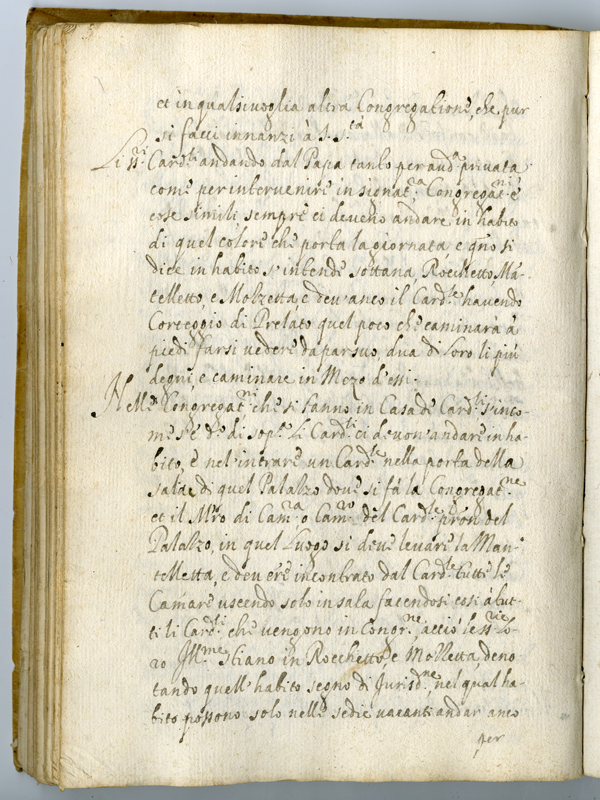 et in qualsivoglia altra Congregatione, che pur
si facci innanzi à S. S.tà
Li SS.ri Card.li andando dal Papa tanto per aud.a privata
come per intervenire in signat.ra Congregat.ni e
cose simili sempre ci deveno andare in habito
di quel colore che porta la giornata e qño si
dice in habito s'intende sottana Rocchetto Má-
telletto, e Mozzetta e deu'anco il Card.le havendo
Corteggio di Prelato quel poco che caminarà à
piedi farsi vedere da par suo, dua di Loro li più
degni, e caminare in Mezo d'essi.
Nelle Congregat.ni che si fanno in Casa de Card.li s'inco-
me s'è d.o di sop.a li Card.li ci devon'andare in ha-
bito, e nel'intrare un Card.le nella porta della
sala di quel Palazzo dove si fà la Congregat.ne
et il Mro di Cam.a o Cam.ro del Card.le pron del
Palazzo, in quel Luogo si deve levare la Man-
telletta, e dev'ere incontrato dal Card.le tutte le
Camare uscendo solo in sala facendosi così à tut-
ti li Card.li che vengono in Congr.ne, acciò le SS.rie Lo-
ro Ill.me stiano in Rocchetto, e Mozzetta deno-
tando quell'habito segno di Jurisd.ne, nel qual ha-
bito possono solo nelle sedie vacanti andar anco
per